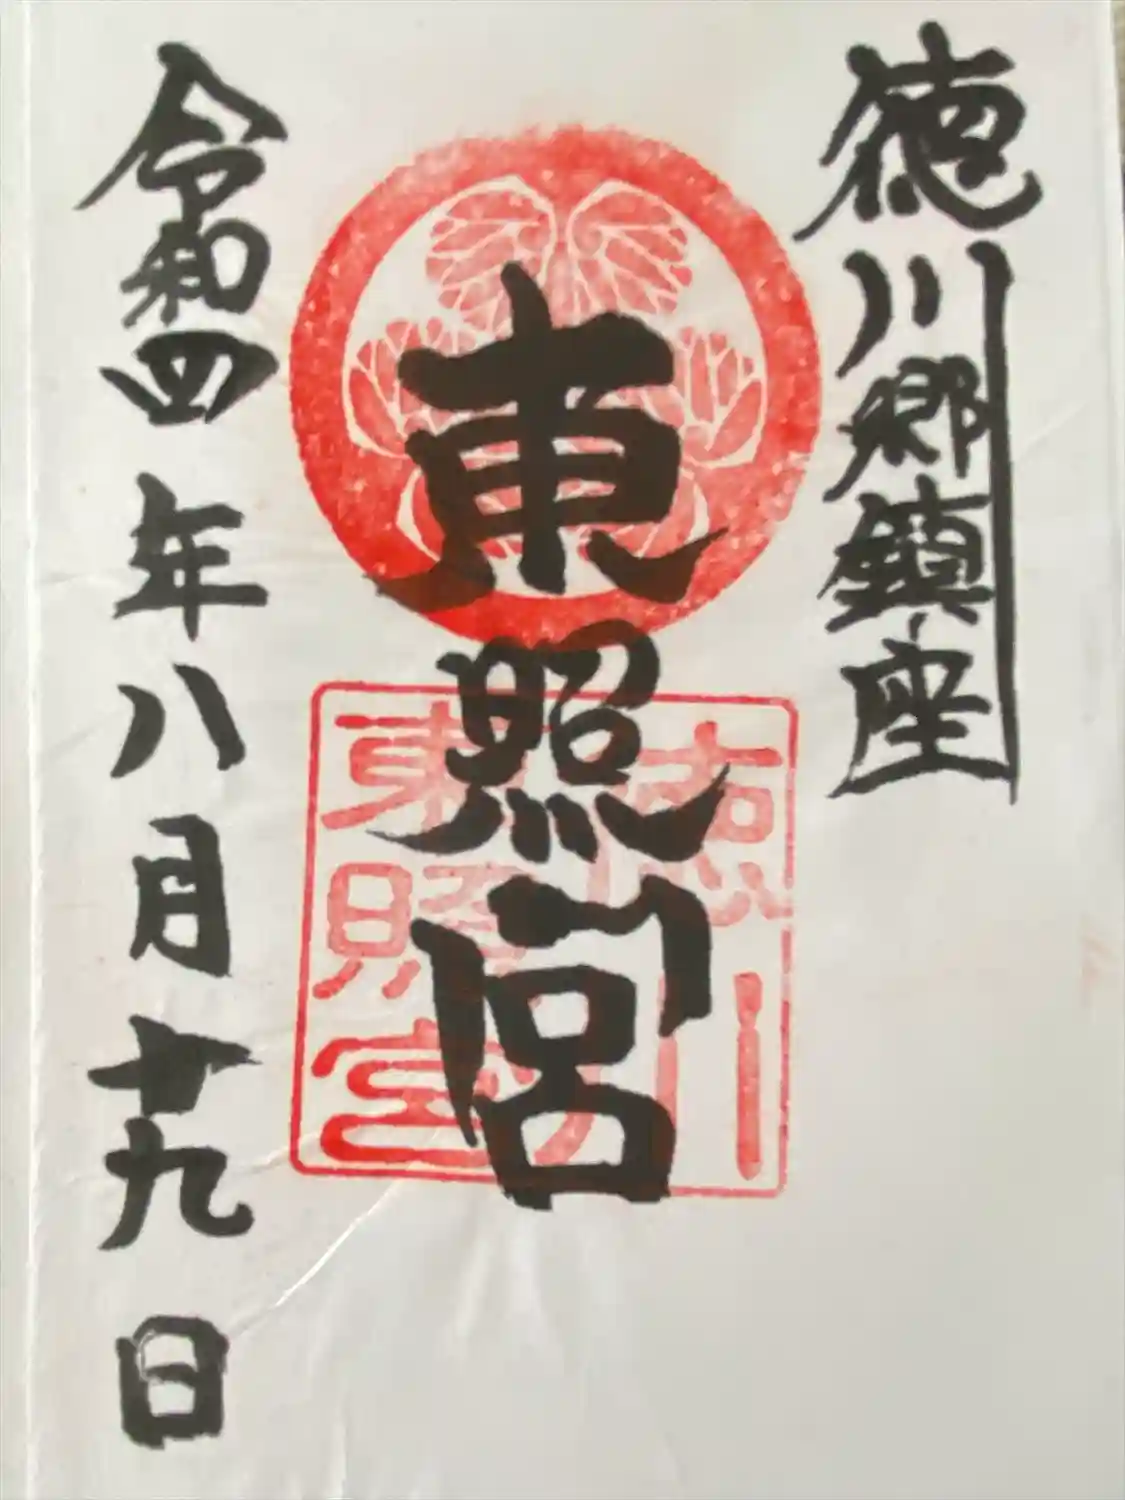 徳川郷鎮座
東照宮
徳川
東照宮
令和四年八月十九日